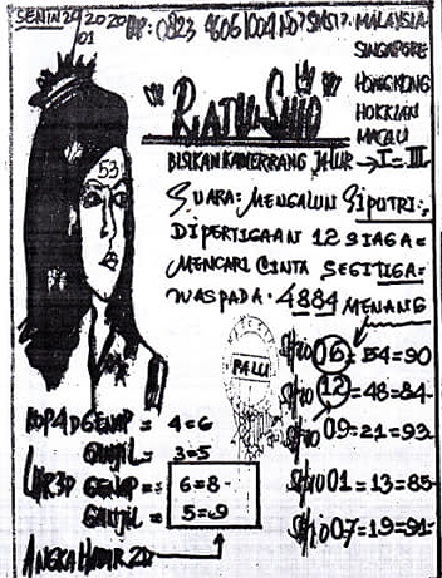 SENIN 20/01 2020
HP: 0823 4606 1004 NO? SMS17: MALAYSIA
SINGAPORE
HONGKONG
HOKKIAN
MACAU
"RATU SHIO"
BISIKAN KAMERRANG JALUR → I = III
SUARA: MENGALUN SIPUTRI:
DIPERTIGAAN 12 SIAGA=
MENCARI CINTA SEGITIGA=
WASPADA. 4884 MENANG
53
PALU
SHIO 06 = 54=90
SHIO 12 = 48=84
SHIO 09=21=93
SHIO 01=13=85
SHIO 07=19=91
KOP4D GENAP = 4=6
GANJIL= 3=5
GENAP = 6=8
GANJIL = 5=9
ANGKA 2D